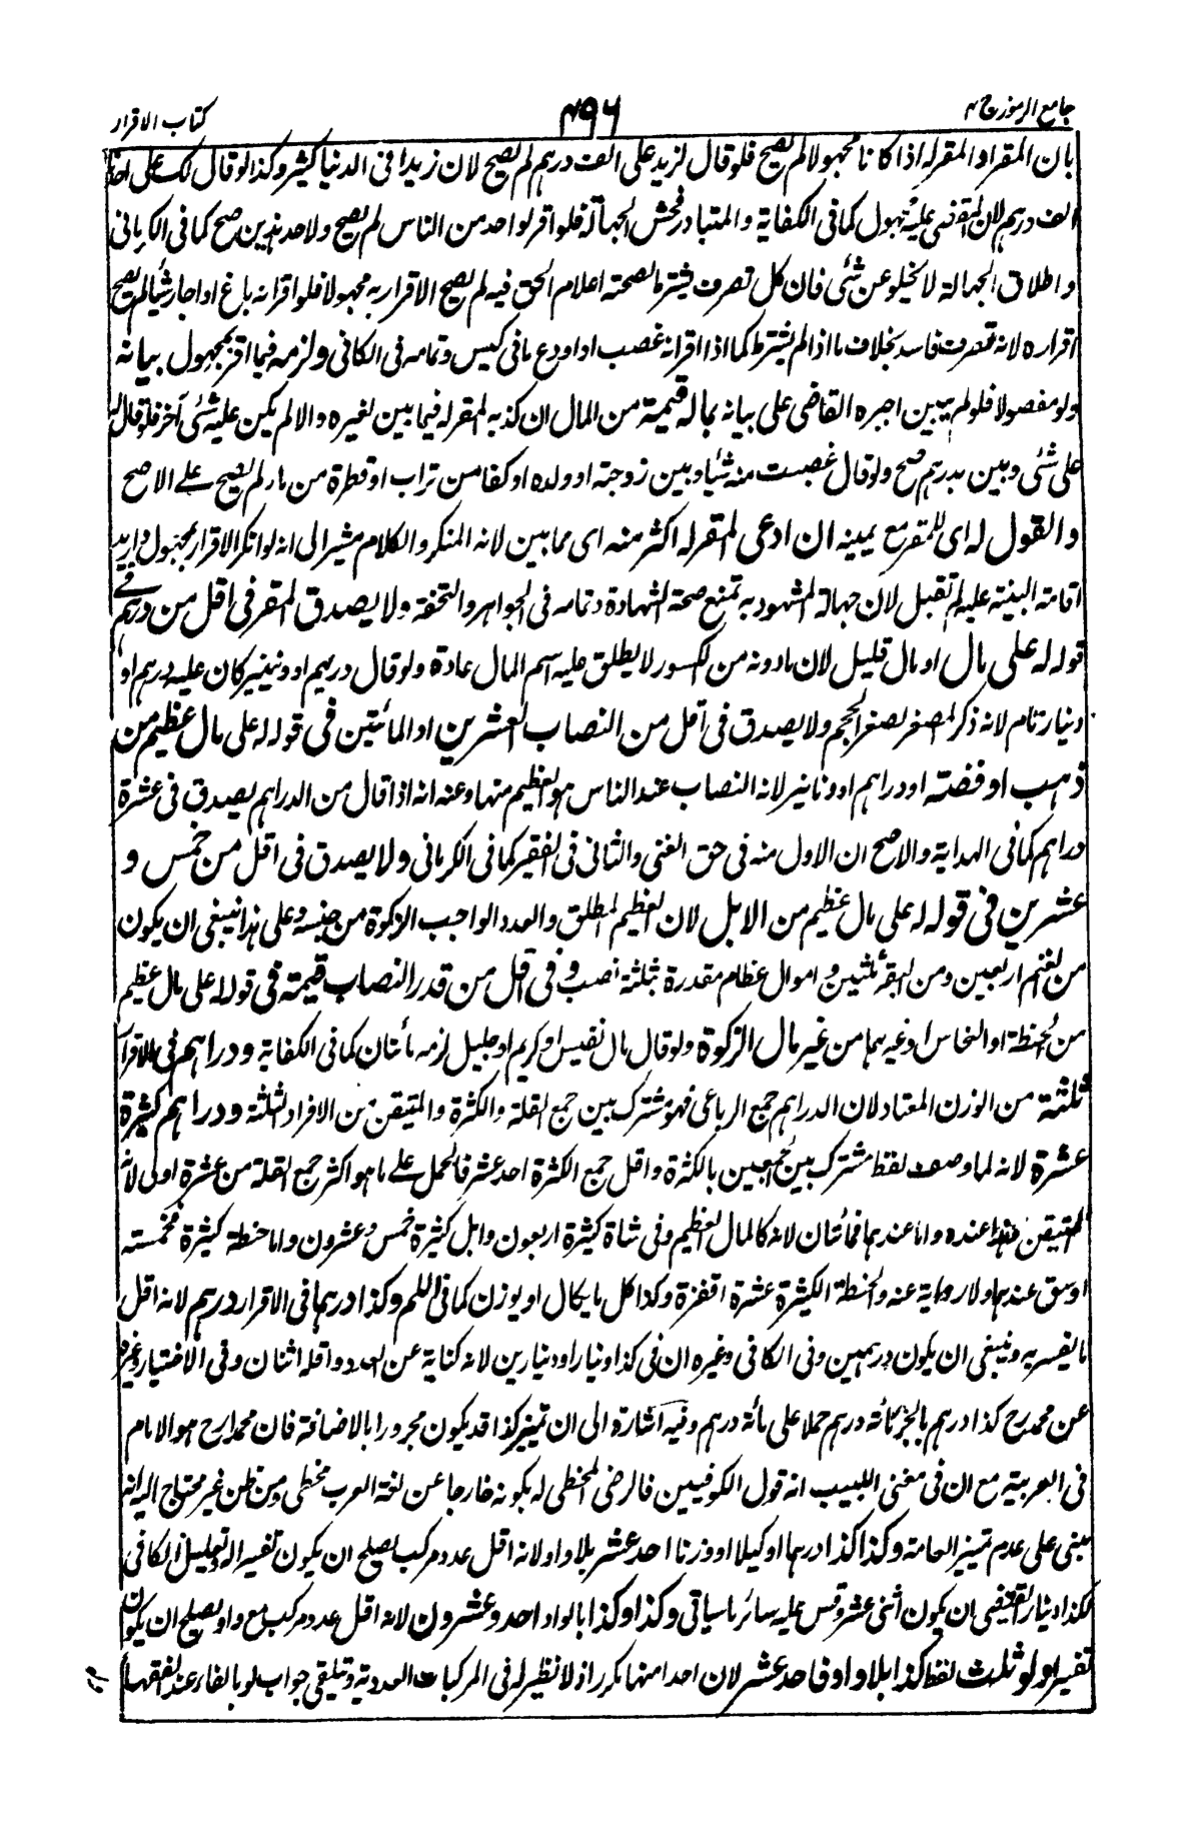 جامع الرموز ج ٢
٤٩٦
كتاب الاقرار
بان المقر او المقر له اذا كانا مجهولا لم يصح فلو قال لزيد على الف درهم لم يصح لان زيدا فى الدنيا كثير وكذا لو قال لك على احدنا
الف درهم لان المقضى عليه مجهول كما فى الكفاية والمتبادر فحش الجهالة فلو اقر لواحد من الناس لم يصح ولاحد هذين صح كما فى الكرمانى
واطلاق الجهالة لا يخلو عن شئ فان كل تصرف يشترط لصحته اعلام الحق فيه لم يصح الاقرار به مجهولا فلو اقر انه باع او اجار شيئا لم يصح
اقراره لانه تصرف فاسد بخلاف ما اذا لم يشترط كما اذا اقر انه غصب او اودع ما فى كيس وتمامه فى الكافى ولزمه فيما اقر بمجهول بيانه
ولو مفصولا فلو لم يبين اجبره القاضى على بيانه بما له قيمة من المال ان كذبه المقر له فيما بين لغيره والا لم يكن عليه شئ آخر فلو قال له
على شئ وبين بدرهم صح ولو قال غصبت منه شيئا وبين زوجته او ولده او كفا من تراب او قطرة من ماء لم يصح على الاصح
والقول له اى للمقر مع يمينه ان ادعى المقر له اكثر منه اى مما بين لانه المنكر والكلام مشير الى انه لو انكر الاقرار بمجهول واريد
اقامة البينة عليه لم تقبل لان جهالة المشهود به تمنع صحة الشهادة وتمامه فى الجواهر والتحفة ولا يصدق المقر فى اقل من درهم فى
قوله له على مال او مال قليل لان ما دونه من الكسور لا يطلق عليه اسم المال عادة ولو قال دريهم او دنينير كان عليه درهم او
دينار تام لانه ذكر المصغر لصغر الحجم ولا يصدق فى اقل من النصاب العشرين او المائتين فى قوله له على مال عظيم من
ذهب او فضته او دراهم او دنانير لانه النصاب عند الناس هو العظيم منها وعنه انه اذا قال من الدراهم يصدق فى عشرة
دراهم كما فى الهداية والاصح ان الاول منه فى حق الغنى والثانى فى الفقير كما فى الكرمانى ولا يصدق فى اقل من خمس و
عشرين فى قوله له على مال عظيم من الابل لان العظيم المطلق والعدد الواجب الزكوة من جنسه وعلى هذا ينبغى ان يكون
من الغنم اربعين ومن البقر ثلثين و اموال عظام مقدرة بثلثة نصب و فى اقل من قدر النصاب قيمة فى قوله له على مال عظيم
من الحنطة او النحاس او غيرهما من غير مال الزكوة ولو قال مال نفيس او كريم او جليل لزمه مأتان كما فى الكفاية ودراهم فى الاقرار
ثلثة من الوزن المعتاد لان الدراهم جمع الرباعى فهو مشترك بين جمع القلة والكثرة والمتيقن من الافراد الثلثة ودراهم كثيرة
عشرة لانه لما وصف لفظ مشترك بين الجمعين بالكثرة واقل جمع الكثرة احد عشر فالحمل على ما هو اكثر جمع القلة من عشرة اولى لانه
المتيقن هذا عنده واما عندهما فمائتان لانه كالمال العظيم وفى شاة كثيرة اربعون وابل كثيرة خمس وعشرون واما حنطة كثيرة فخمسته
اوسق عندهما ولا رواية عنه والحنطة الكثيرة عشرة اقفزة وكذا كل ما يكال او يوزن كما فى اللم وكذا درهما فى الاقرار درهم لانه اقل
ما يفسر به وينبغى ان يكون درهمين وفى الكافى وغيره ان فى كذا دينارا دينارين لانه كناية عن العدد واقله اثنان وفى الاختيار وغيره
عن محمد رح كذا درهم بالجر كمائة درهم حملا على مائة درهم وفيه اشارة الى ان تمييز كذا قد يكون مجرورا بالاضافة فان محمدا رح هو الامام
فى العربية مع ان فى مغنى اللبيب انه قول الكوفيين فالرضى المخطى له بكونه خارجا عن لغة العرب مخطى ومن ظن غير محتاج اليه انه
مبنى على عدم تمييز العامة وكذا كذا درهما او كيلا او وزنا احد عشر بلا واو لانه اقل عدد مركب يصلح ان يكون تفسيرا له وتعليل الكافى
لكذا دينارا يقتضى ان يكون اثنى عشر وقس عليه سائر ما سياتى وكذا وكذا بالواو احد وعشرون لانه اقل عدد مركب مع واو يصلح ان يكون
تفسيرا ولو ثلث لفظ كذا بلا واو فاحد عشر لان احدا منها مكرر اذ لا نظير له فى المركبات العددية وتيلقى جواب لو بالفاء عند الفقهاء